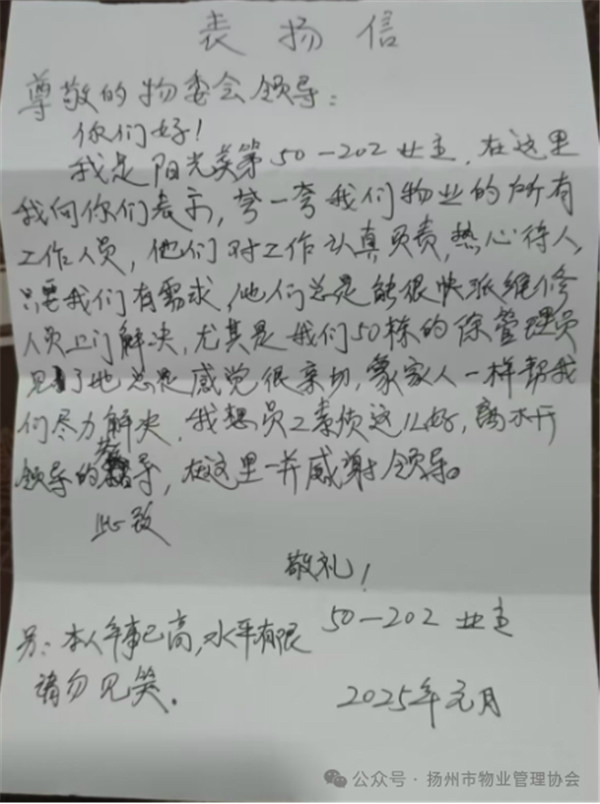 表扬信
尊敬的物委会领导：
你们好！
我是阳光美第50-202业主，在这里
我向你们表示，夸一夸我们物业的所有
工作人员，他们对工作认真负责，热心待人，
只要我们有需求，他们总是能很快派维修
人员上门解决，尤其是我们50栋的徐管理员
见了她总是感觉很亲切，象家人一样帮我
们尽力解决，我想员工素质这么好，离不开
领导的教导，在这里一并感谢领导。
此致
敬礼！
50-202 业主
另：本人年事已高，水平有限
请勿见笑。
2025年元月
公众号·扬州市物业管理协会